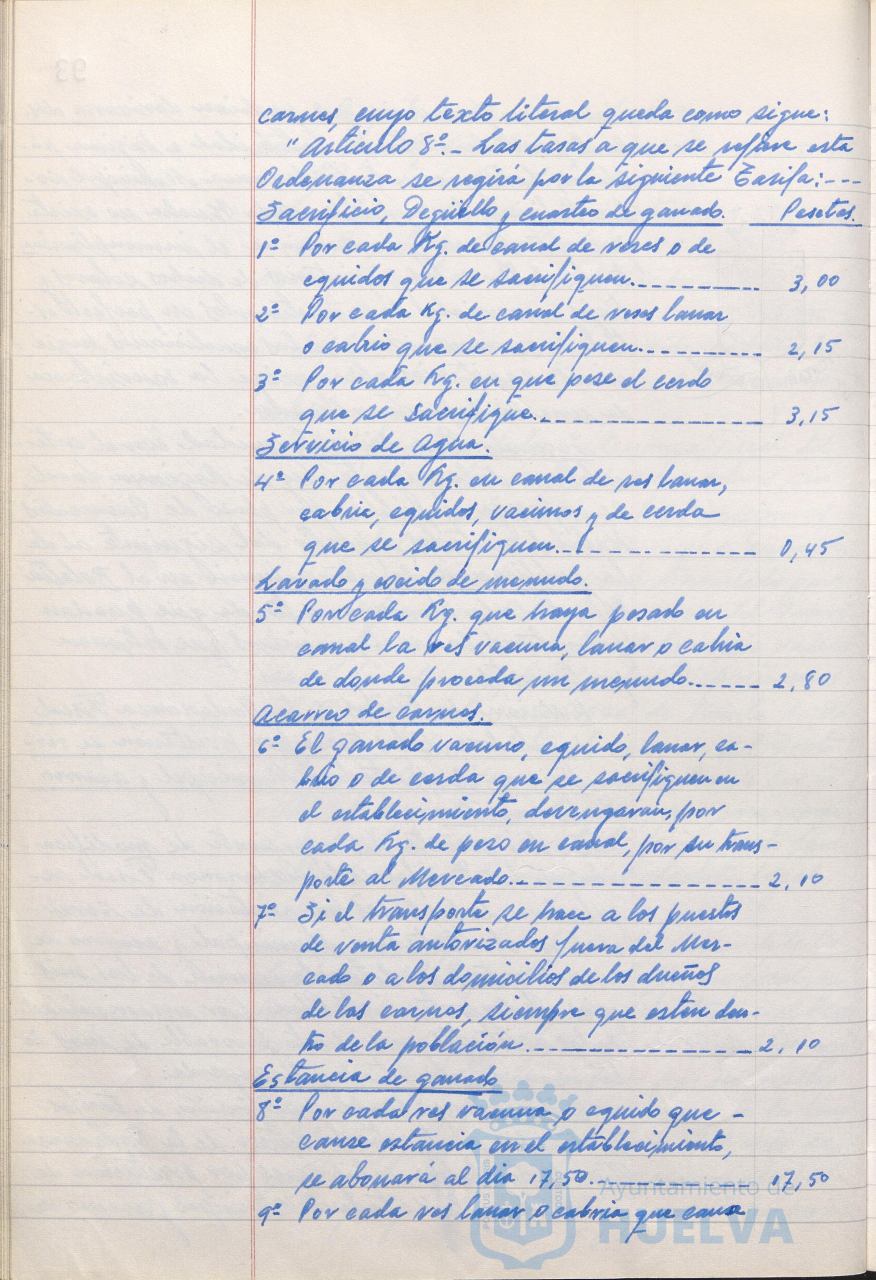 carnes, cuyo texto literal queda como sigue:
"Artículo 8º.- Las tasas a que se refiere esta
Ordenanza se regirá por la siguiente Tarifa:---
Sacrificio, Degüello y cuarteo de ganado. Pesetas.
1º Por cada Kg. de canal de reses o de
equidos que se sacrifiquen.---------- 3,00
2º Por cada Kg. de canal de reses lanar
o cabrio que se sacrifiquen.---------- 2,15
3º Por cada Kg. en que pese el cerdo
que se sacrifique.---------------- 3,15
Servicio de Agua.
4º Por cada Kg. en canal de res lanar,
cabria, equidos, vacunos y de cerda
que se sacrifiquen.--------------- 0,45
Lavado y cocido de menudo.
5º Por cada Kg. que haya pesado en
canal la res vacuna, lanar o cabria
de donde proceda un menudo.------ 2,80
Acarreo de carnes.
6º El ganado vacuno, equido, lanar, ca-
brio o de cerda que se sacrifiquen en
el establecimiento, devengaran, por
cada Kg. de peso en canal, por su trans-
porte al Mercado.---------------- 2,10
7º Si el transporte se hace a los puestos
de venta autorizados fuera del Mer-
cado o a los domicilios de los dueños
de las carnes, siempre que esten den-
tro de la población.--------------- 2,10
Estancia de ganado
8º Por cada res vacuna o equido que -
cause estancia en el establecimiento,
se abonará al dia 17,50.----------- 17,50
9º Por cada res lanar o cabria que cause
Ayuntamiento de
HUELVA